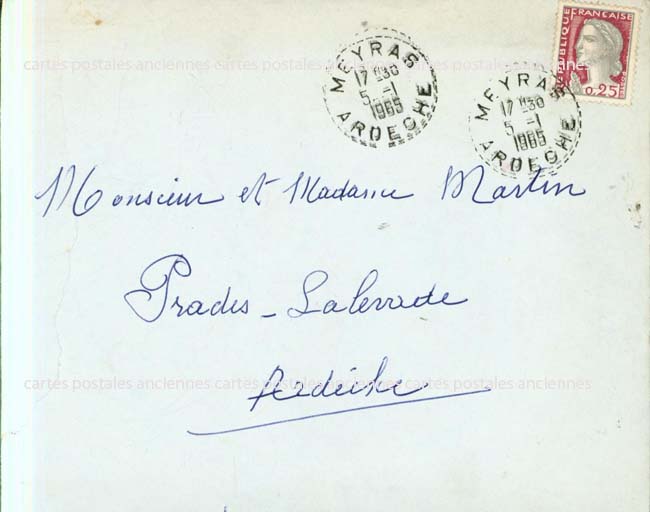 RÉPUBLIQUE FRANÇAISE
0,25
MEYRAS
17H30
5-1
1965
ARDECHE
MEYRAS
17H30
5-1
1965
ARDECHE
cartes postales anciennes cartes postales anciennes cartes postales anciennes
Monsieur et Madame Martin
Prades - Lalevade
cartes postales anciennes cartes postales anciennes cartes postales anciennes
Ardèche